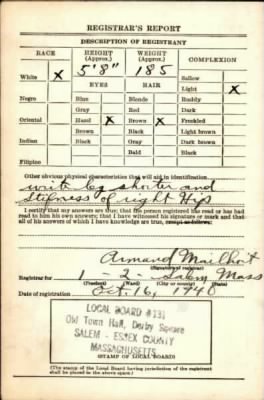 REGISTRAR'S REPORT
DESCRIPTION OF REGISTRANT
RACE HEIGHT (Approx.) WEIGHT (Approx.) COMPLEXION
White X 5'8" 185 Sallow
EYES HAIR Light X
Negro Blue Blonde Ruddy
Gray Red Dark
Oriental Hazel X Brown X Freckled
Brown Black Light brown
Indian Black Gray Dark brown
Bald Black
Filipino
Other obvious physical characteristics that will aid in identification
leg shorter and
stifness of right Hip
I certify that my answers are true; that the person registered has read or has had
read to him his own answers; that I have witnessed his signature or mark and that
all of his answers of which I have knowledge are true, except as follows:
Armand Mailhoit
(Signature of registrar)
Registrar for 1 - 2 - Salem Mass
(Precinct) (Ward) (City or county) (State)
Date of registration Oct. 16, 1940
LOCAL BOARD #131
Old Town Hall, Derby Square
SALEM - ESSEX COUNTY
MASSACHUSETTS
(STAMP OF LOCAL BOARD)
(The stamp of the Local Board having jurisdiction of the registrant
shall be placed in the above space.)